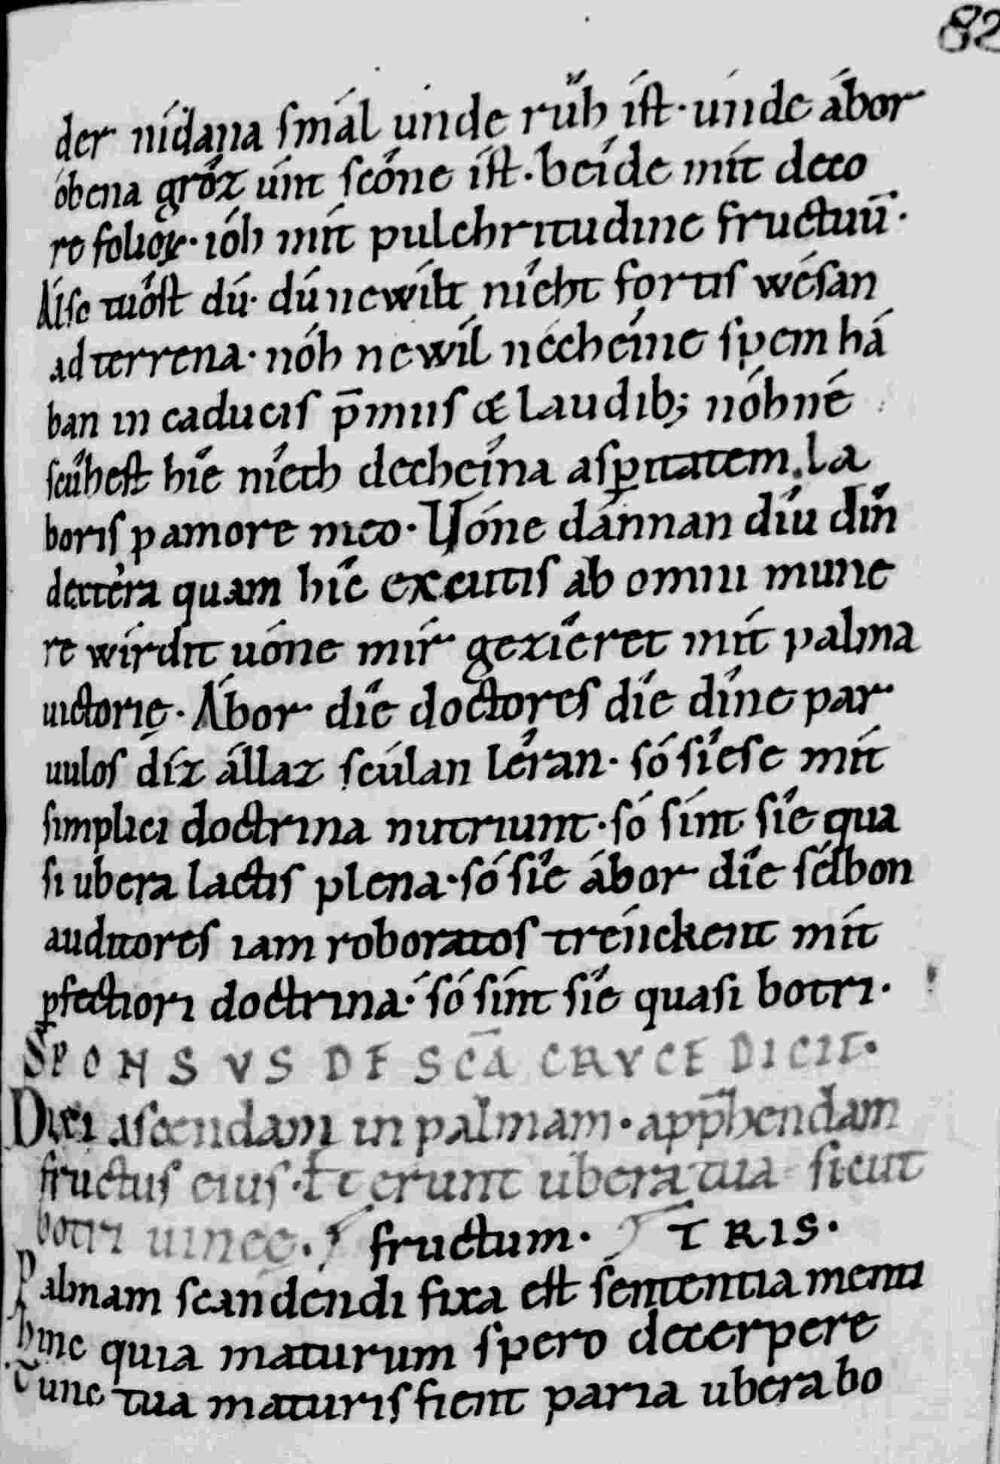 82
der nídana ſmál únde rũh íſt · únde ábor
óbena gróz únt ſcóne íſt · beíde mít deco
re folioꝝ · ióh mít pulchritudine fructuū ·
Álſe tuóſt dú · dú newílt níeht fortis wéſan
ad terrena · nóh newíl nécheíne ſpem há
ban in caducis p̄miis & laudib; nóh né
ſcúheſt híe níeth decheína aſꝑitatem la
boris ꝑ amore meo · Uóne dánnan díu dín
dextera quam híe excutis ab omni mune
re wírdit uóne mír gezíeret mít palma
uictorię · Ábor díe doctores díe díne par
uulos díz állaz ſcúlan léran · ſó ſíeſe mít
ſimplici doctrina nutriunt · ſó ſínt ſíe qua
ſi ubera lactis plena · ſó ſíe ábor díe ſélbon
auditores iam roboratos treínckent mít
ꝑfectiori doctrina · ſó ſínt ſíe quaſi botri ·
SPONSVS DE SCĀ CRVCE DICIT ·
Dixi aſcendam in palmam · app̄hendam
fructus eius · Et erunt ubera tua ſicut
botri uineę · fructum · TRIS ·
Palmam ſcandendi fixa eſt ſententia menti
hinc quia maturum ſpero decerpere
Tunc tua maturis fient paria ubera bo